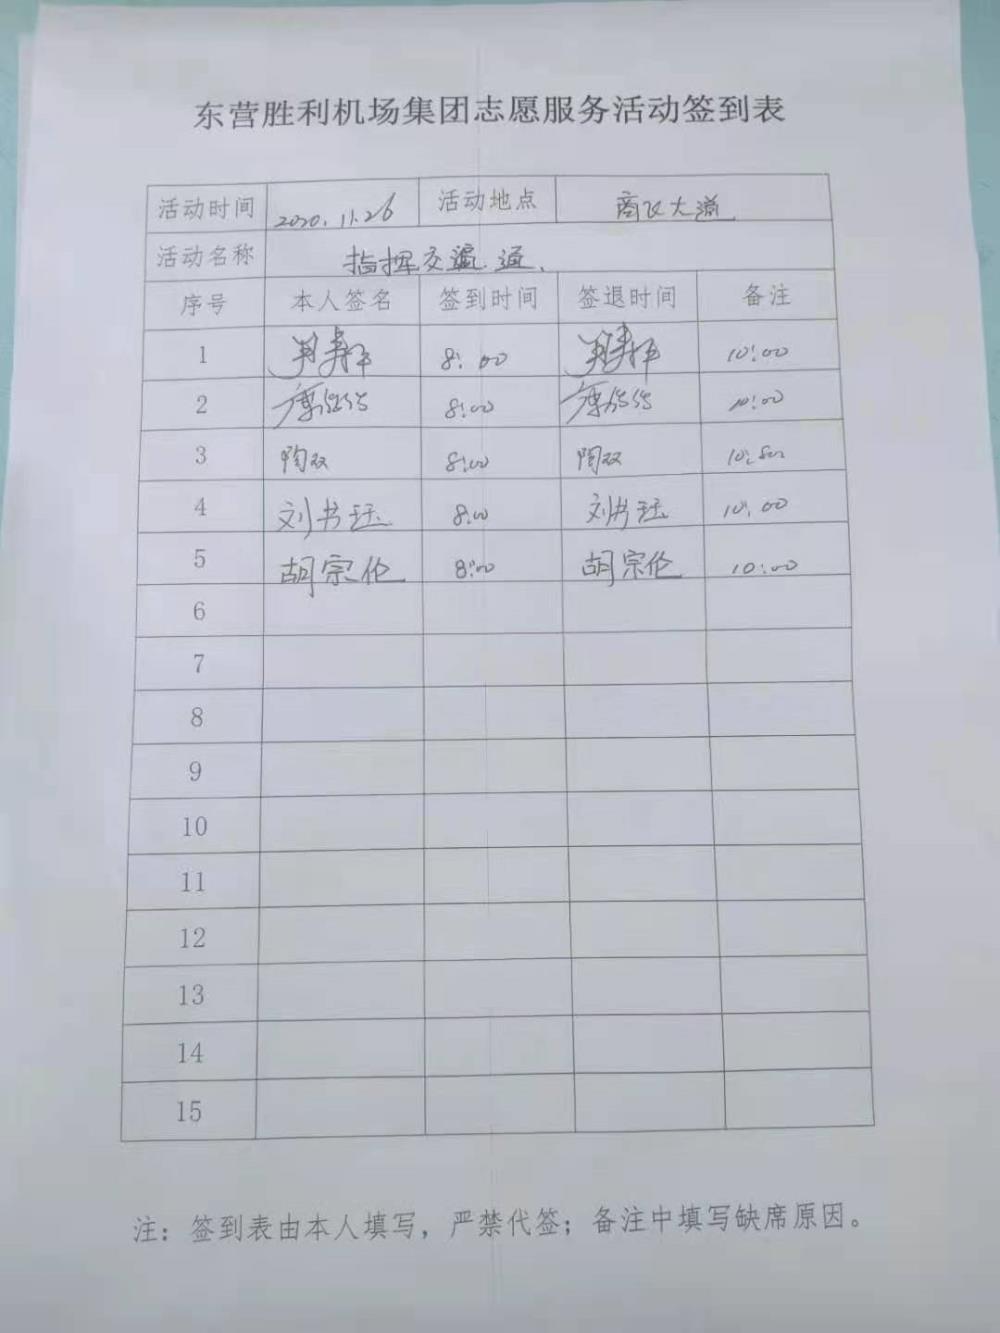 东营胜利机场集团志愿服务活动签到表
活动时间 2020.11.26 活动地点 商飞大道
活动名称 指挥交通
序号 本人签名 签到时间 签退时间 备注
1 8:00 10:00
2 8:00 10:00
3 陶双 8:00 陶双
4 刘书珏 8:00 刘书珏 10:00
5 胡宗伦 8:00 胡宗伦 10:00
6
7
8
9
10
11
12
13
14
15
注：签到表由本人填写，严禁代签；备注中填写缺席原因。